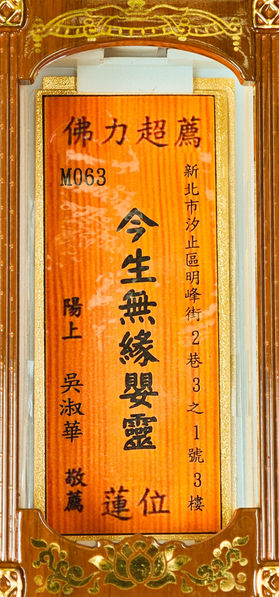 佛力超薦
M063
新北市汐止區明峰街2巷3之1號3樓
今生無緣嬰靈
陽上 吳淑華 敬薦
蓮位